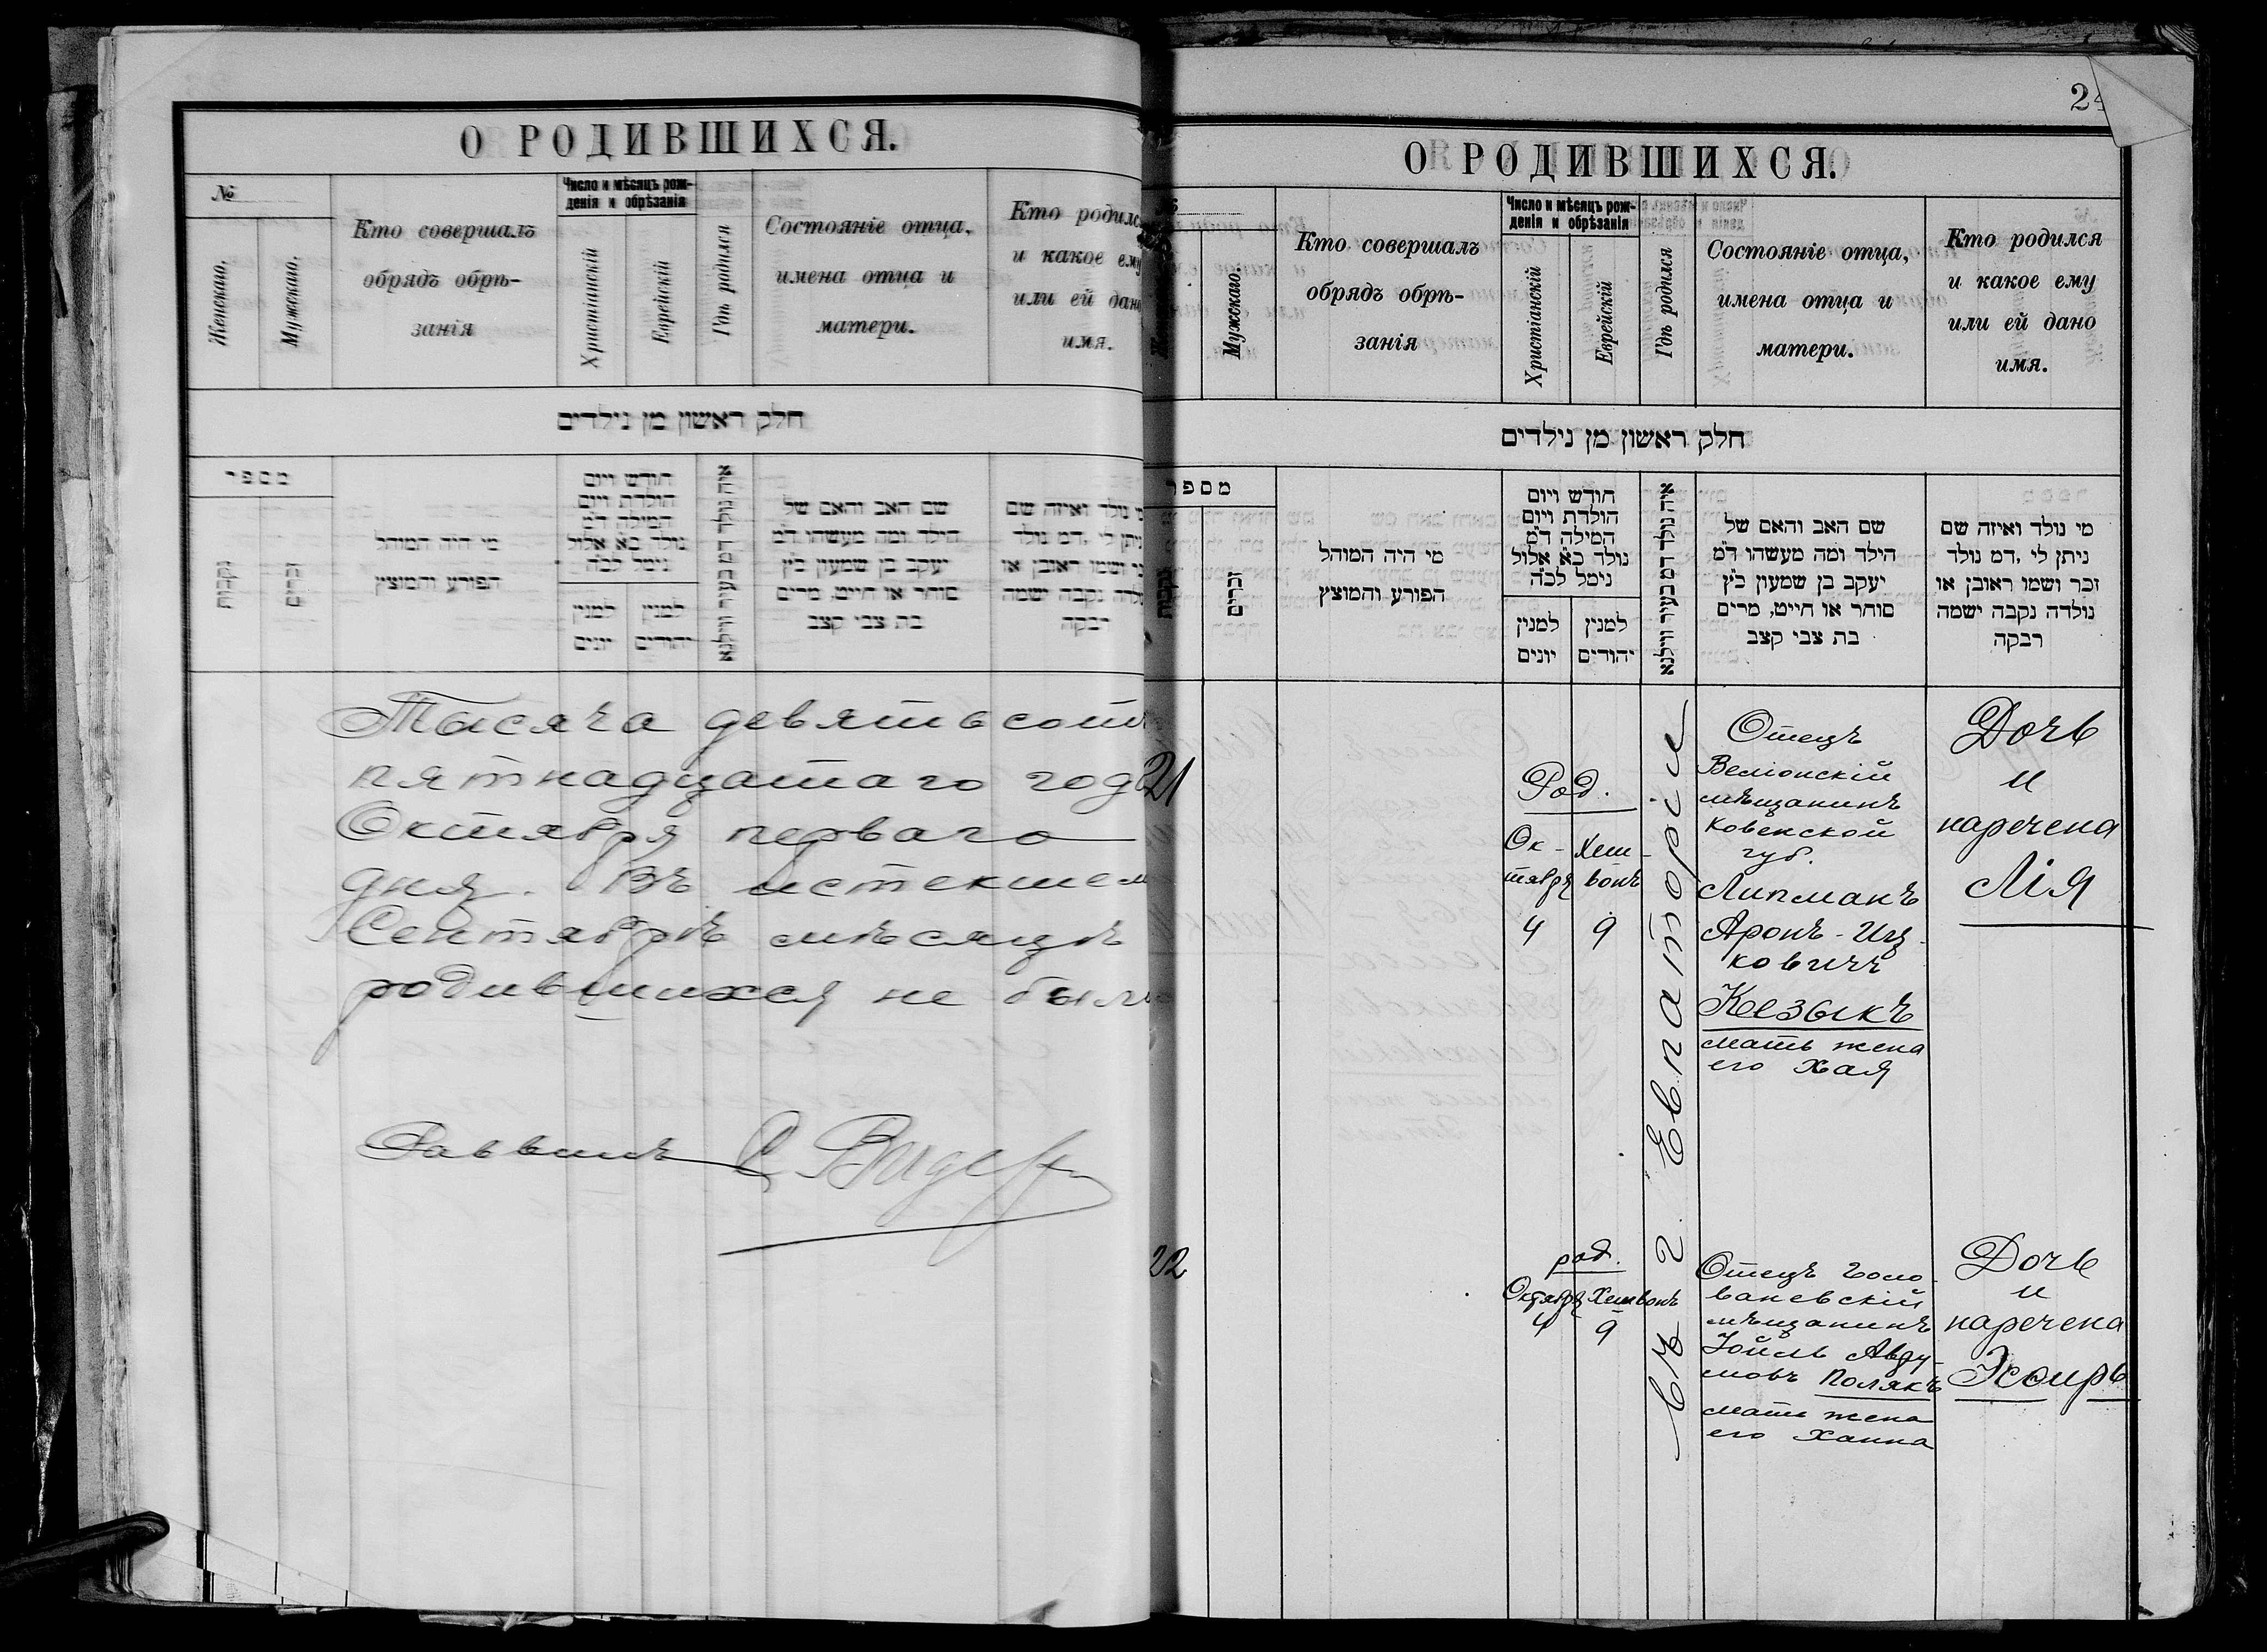 О РОДИВШИХСЯ.
№
Женскаго.
Мужскаго.
Кто совершалъ
обрядъ обрѣ-
занія
Число и мѣсяцъ рож-
денія и обрѣзанія
Христіанскій
Еврейскій
Гдѣ родился
Состояніе отца,
имена отца и
матери.
Кто родилс
и какое ему
или ей дано
имя.
חלק ראשון מן נילדים
מספר
נקבות
זכרים
מי היה המוהל
הפורע והמוצץ
חודש ויום
הולדת ויום
המילה ד״מ
נולד כ״א אלול
נימל לכ״ה
למנין
יונים
למנין
יהודים
איה נולד דמ בעיר ווילנא
שם האב והאם של
הילד ומה מעשהו ד״מ
יעקב בן שמעון כ״ץ
סוחר או חייט, מרים
בת צבי קצב
מי נולד ואיזה שם
ניתן לי ,דמ נולד
ושמו ראובן או
נולדה נקבה ישמה
רבקה
Тысяча девятьсотъ
пятнадцатаго года
Октября перваго
дня. Въ истекшем
Сентябрѣ мѣсяцѣ
родившихся не был
Раввинъ
24
О РОДИВШИХСЯ.
Мужскаго.
Кто совершалъ
обрядъ обрѣ-
занія
Число и мѣсяцъ рож-
денія и обрѣзанія
Христіанскій
Еврейскій
Гдѣ родился
Состояніе отца,
имена отца и
матери.
Кто родился
и какое ему
или ей дано
имя.
חלק ראשון מן נילדים
מספר
נקבות
זכרים
מי היה המוהל
הפורע והמוצץ
חודש ויום
הולדת ויום
המילה ד״מ
נולד כ״א אלול
נימל לכ״ה
למנין
יונים
למנין
יהודים
איה נולד דמ בעיר ווילנא
שם האב והאם של
הילד ומה מעשהו ד״מ
יעקב בן שמעון כ״ץ
סוחר או חייט, מרים
בת צבי קצב
מי נולד ואיזה שם
ניתן לי ,דמ נולד
זכר ושמו ראובן או
נולדה נקבה ישמה
רבקה
21
Род.
Ок-
тября
4
Хеш-
вонъ
9
въ г. Евпаторіи
Отецъ
Веліонскій
мѣщанинъ
Ковенской
губ.
Липманъ
Аронъ-Иц-
ковичъ
Кезыкъ
мать жена
его Хая
Дочь
и
наречена
Лія
22
род.
Октября Хешвонъ
4 9
Отецъ Голо-
ваневскій
мѣщанинъ
Іойль Авру-
мовъ Полякъ
мать жена
его Ханна
Дочь
и
наречена
Эсѳирь